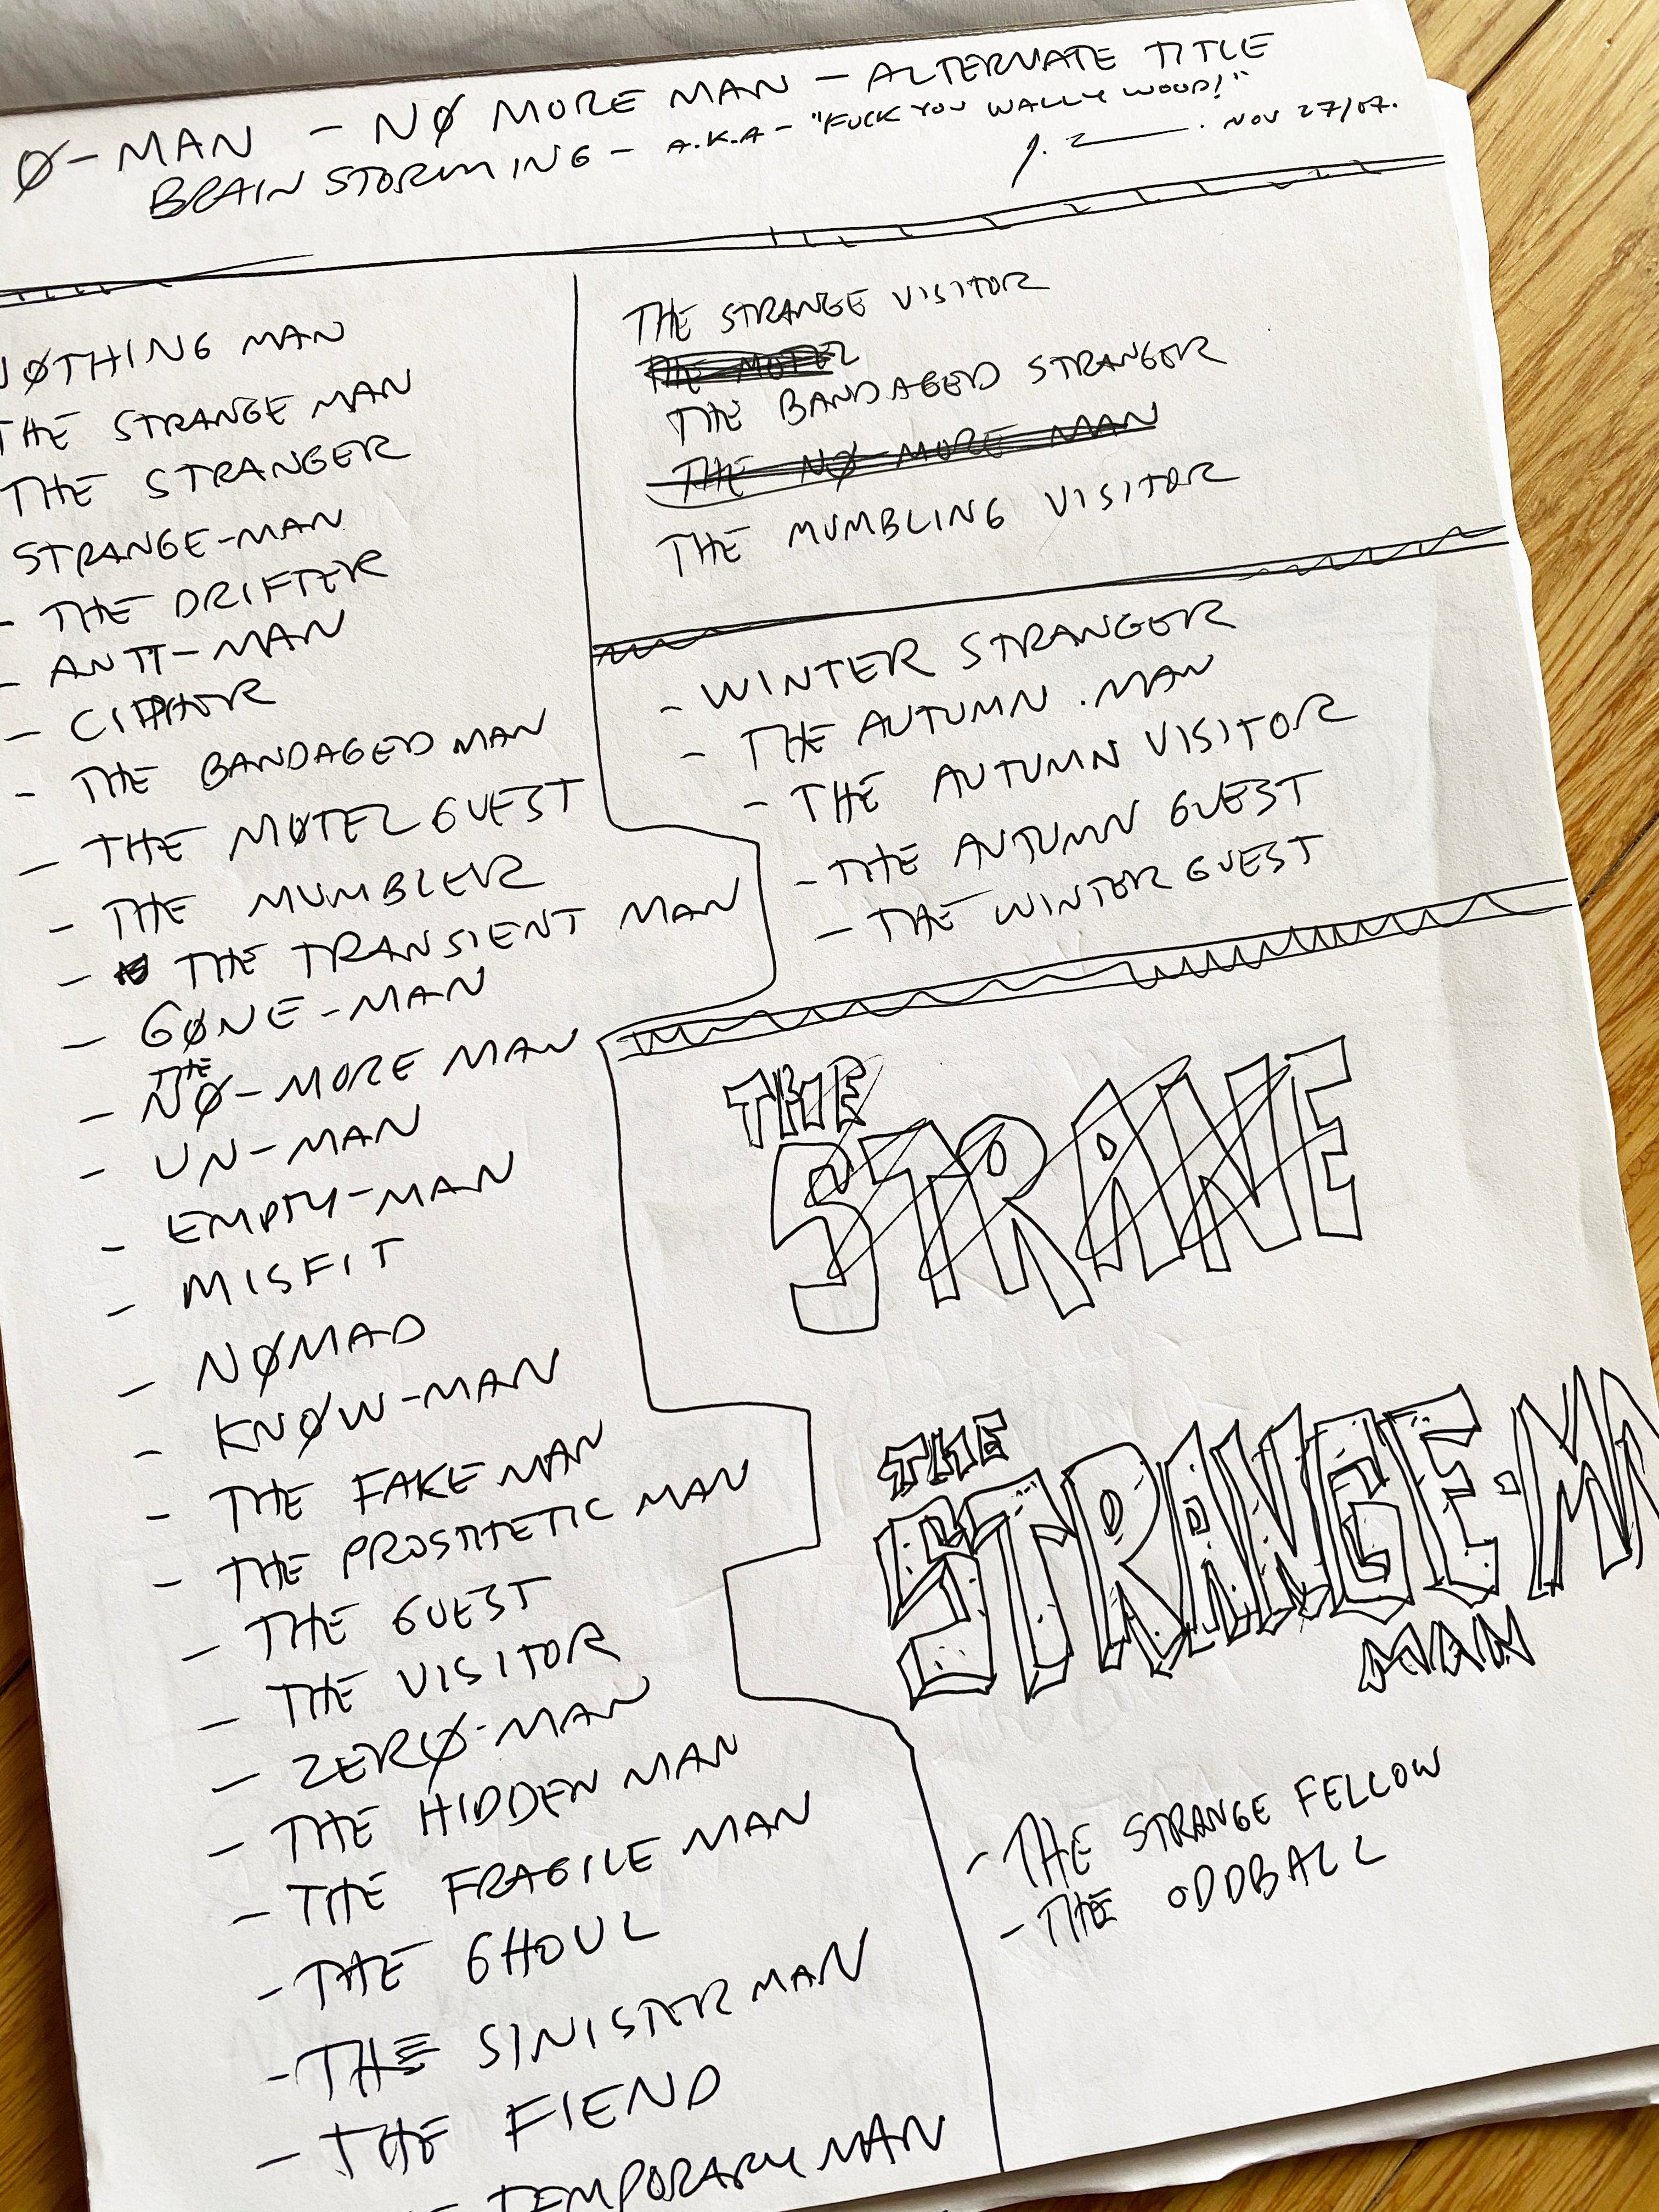 Ø-MAN - NØ MORE MAN - ALTERNATE TITLE
BRAINSTORMING - A.K.A - "FUCK YOU WALLY WOOD!"
NOV 27/07.
NØTHING MAN
THE STRANGE MAN
THE STRANGER
STRANGE-MAN
- THE DRIFTER
- ANTI-MAN
- CIPHER
- THE BANDAGED MAN
- THE MØTEL GUEST
- THE MUMBLER
- THE TRANSIENT MAN
- GØNE-MAN
- THE NØ-MORE MAN
- UN-MAN
- EMPTY-MAN
- MISFIT
- NØMAD
- KNØW-MAN
- THE FAKE MAN
- THE PROSTHETIC MAN
- THE GUEST
- THE VISITOR
- ZERØ-MAN
- THE HIDDEN MAN
- THE FRAGILE MAN
- THE GHOUL
- THE SINISTER MAN
- THE FIEND
TEMPORARY MAN
THE STRANGE VISITOR
THE MOTEL
THE BANDAGED STRANGER
THE NØ-MORE MAN
THE MUMBLING VISITOR
- WINTER STRANGER
- THE AUTUMN .MAN
- THE AUTUMN VISITOR
- THE AUTUMN GUEST
- THE WINTER GUEST
THE
STRANE
THE
STRANGE-M
MAN
- THE STRANGE FELLOW
- THE ODDBALL